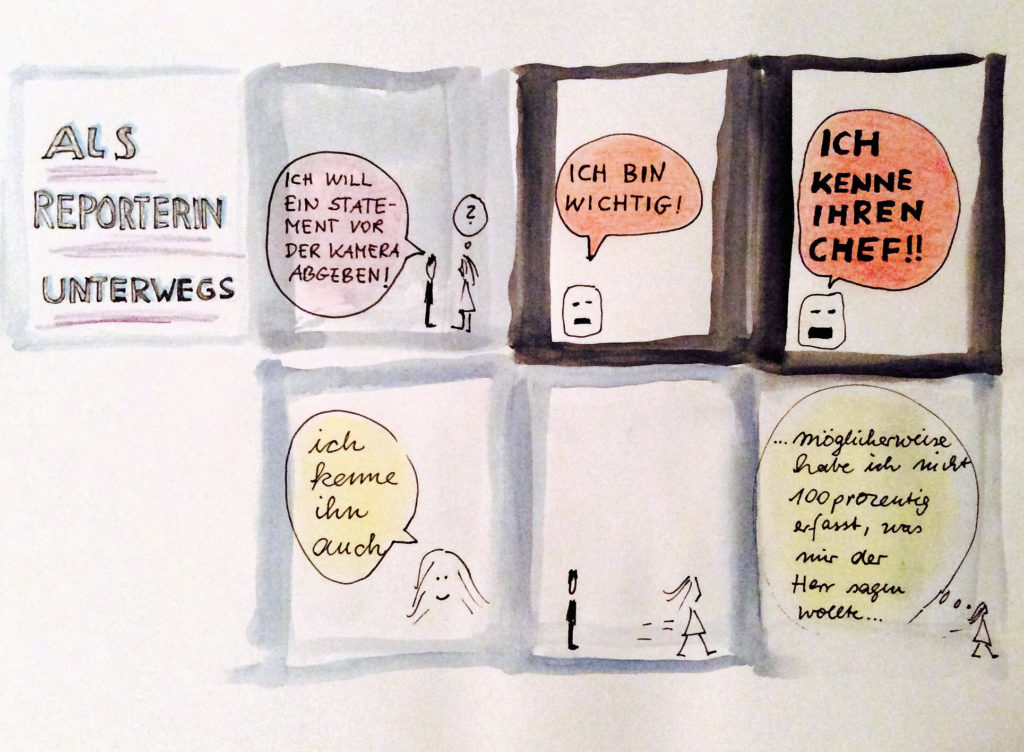 ALS
REPORTERIN
UNTERWEGS
ICH WILL
EIN STATE-
MENT VOR
DER KAMERA
ABGEBEN!
?
ICH BIN
WICHTIG!
ICH
KENNE
IHREN
CHEF!!
ich
kenne
ihn
auch
... möglicherweise
habe ich nicht
100prozentig
erfasst, was
mir der
Herr sagen
wollte...